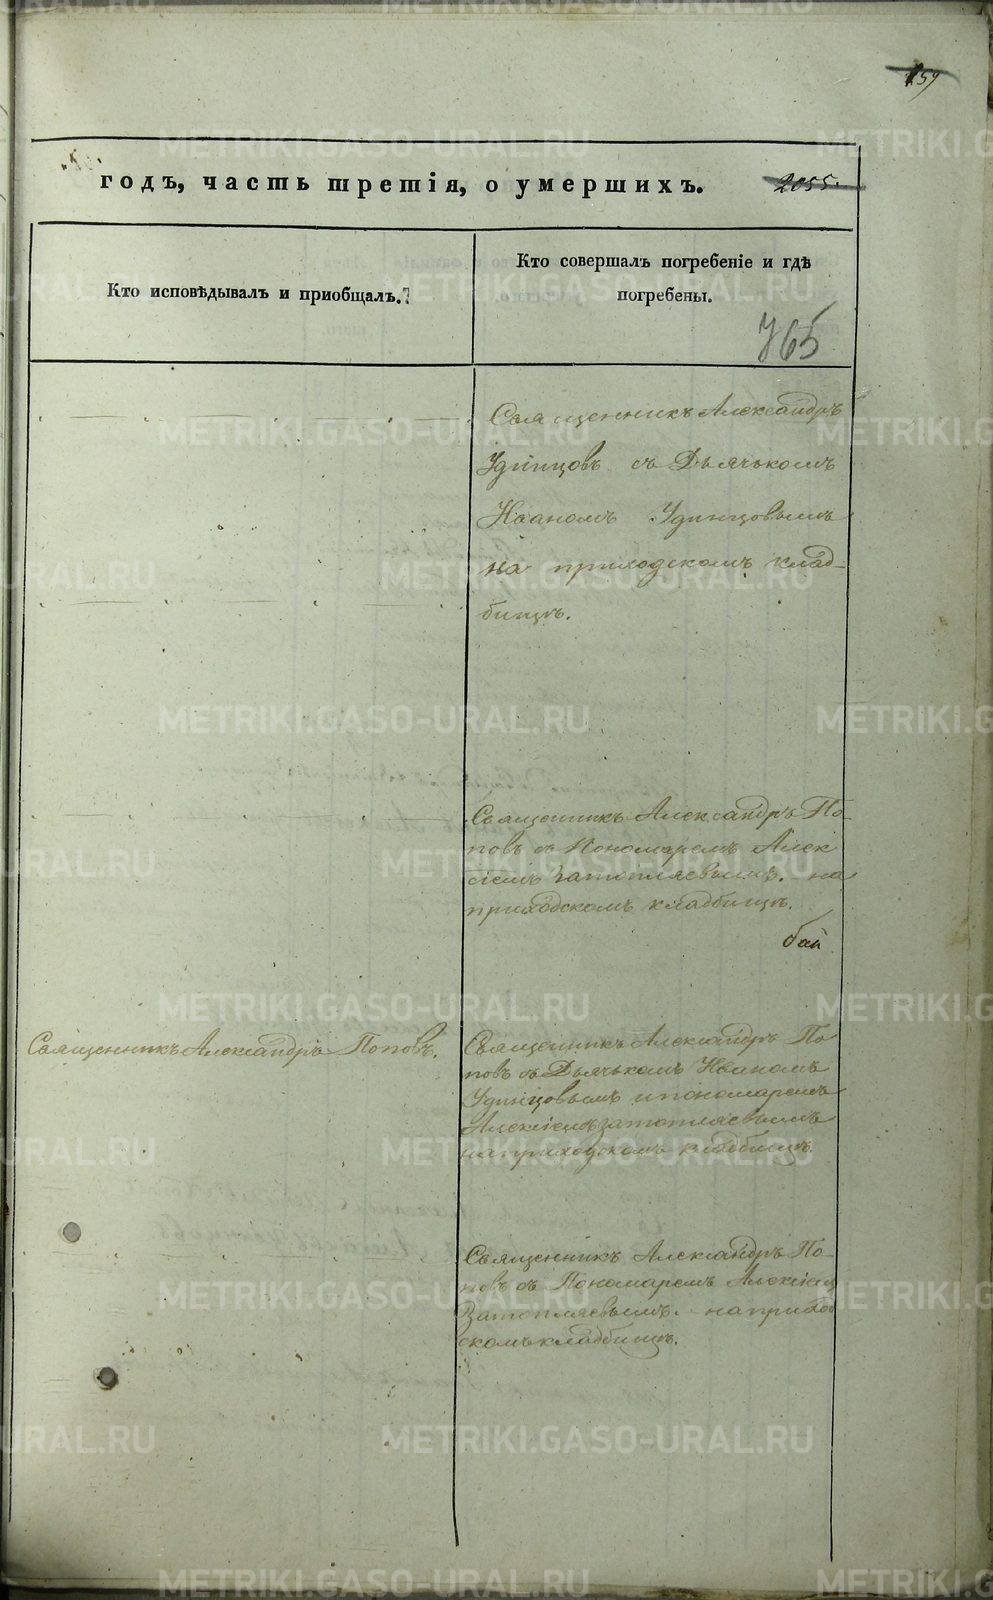 159
годъ, часть третія, о умершихъ. 2055.
Кто исповѣдывалъ и приобщалъ.
Кто совершалъ погребеніе и гдѣ
погребены.
765
Священникъ Александръ
Удинцовъ съ Дьячькомъ
Иваномъ Удинцовымъ
на приходскомъ клад-
бищѣ.
Священникъ Александръ По-
повъ съ Пономаремъ Алек
сіемъ Затопляевымъ. на
приходскомъ кладбищѣ.
Священникъ Александръ Поповъ.
Священникъ Александръ По-
повъ съ Дьячькомъ Иваномъ
Удинцовымъ и пономаремъ
Алексіемъ Затопляевымъ
на приходскомъ кладбищѣ.
Священникъ Александръ По-
повъ съ Пономаремъ Алексіемъ
Затопляевымъ. на приход
скомъ кладбищѣ.
METRIKI.GASO-URAL.RU